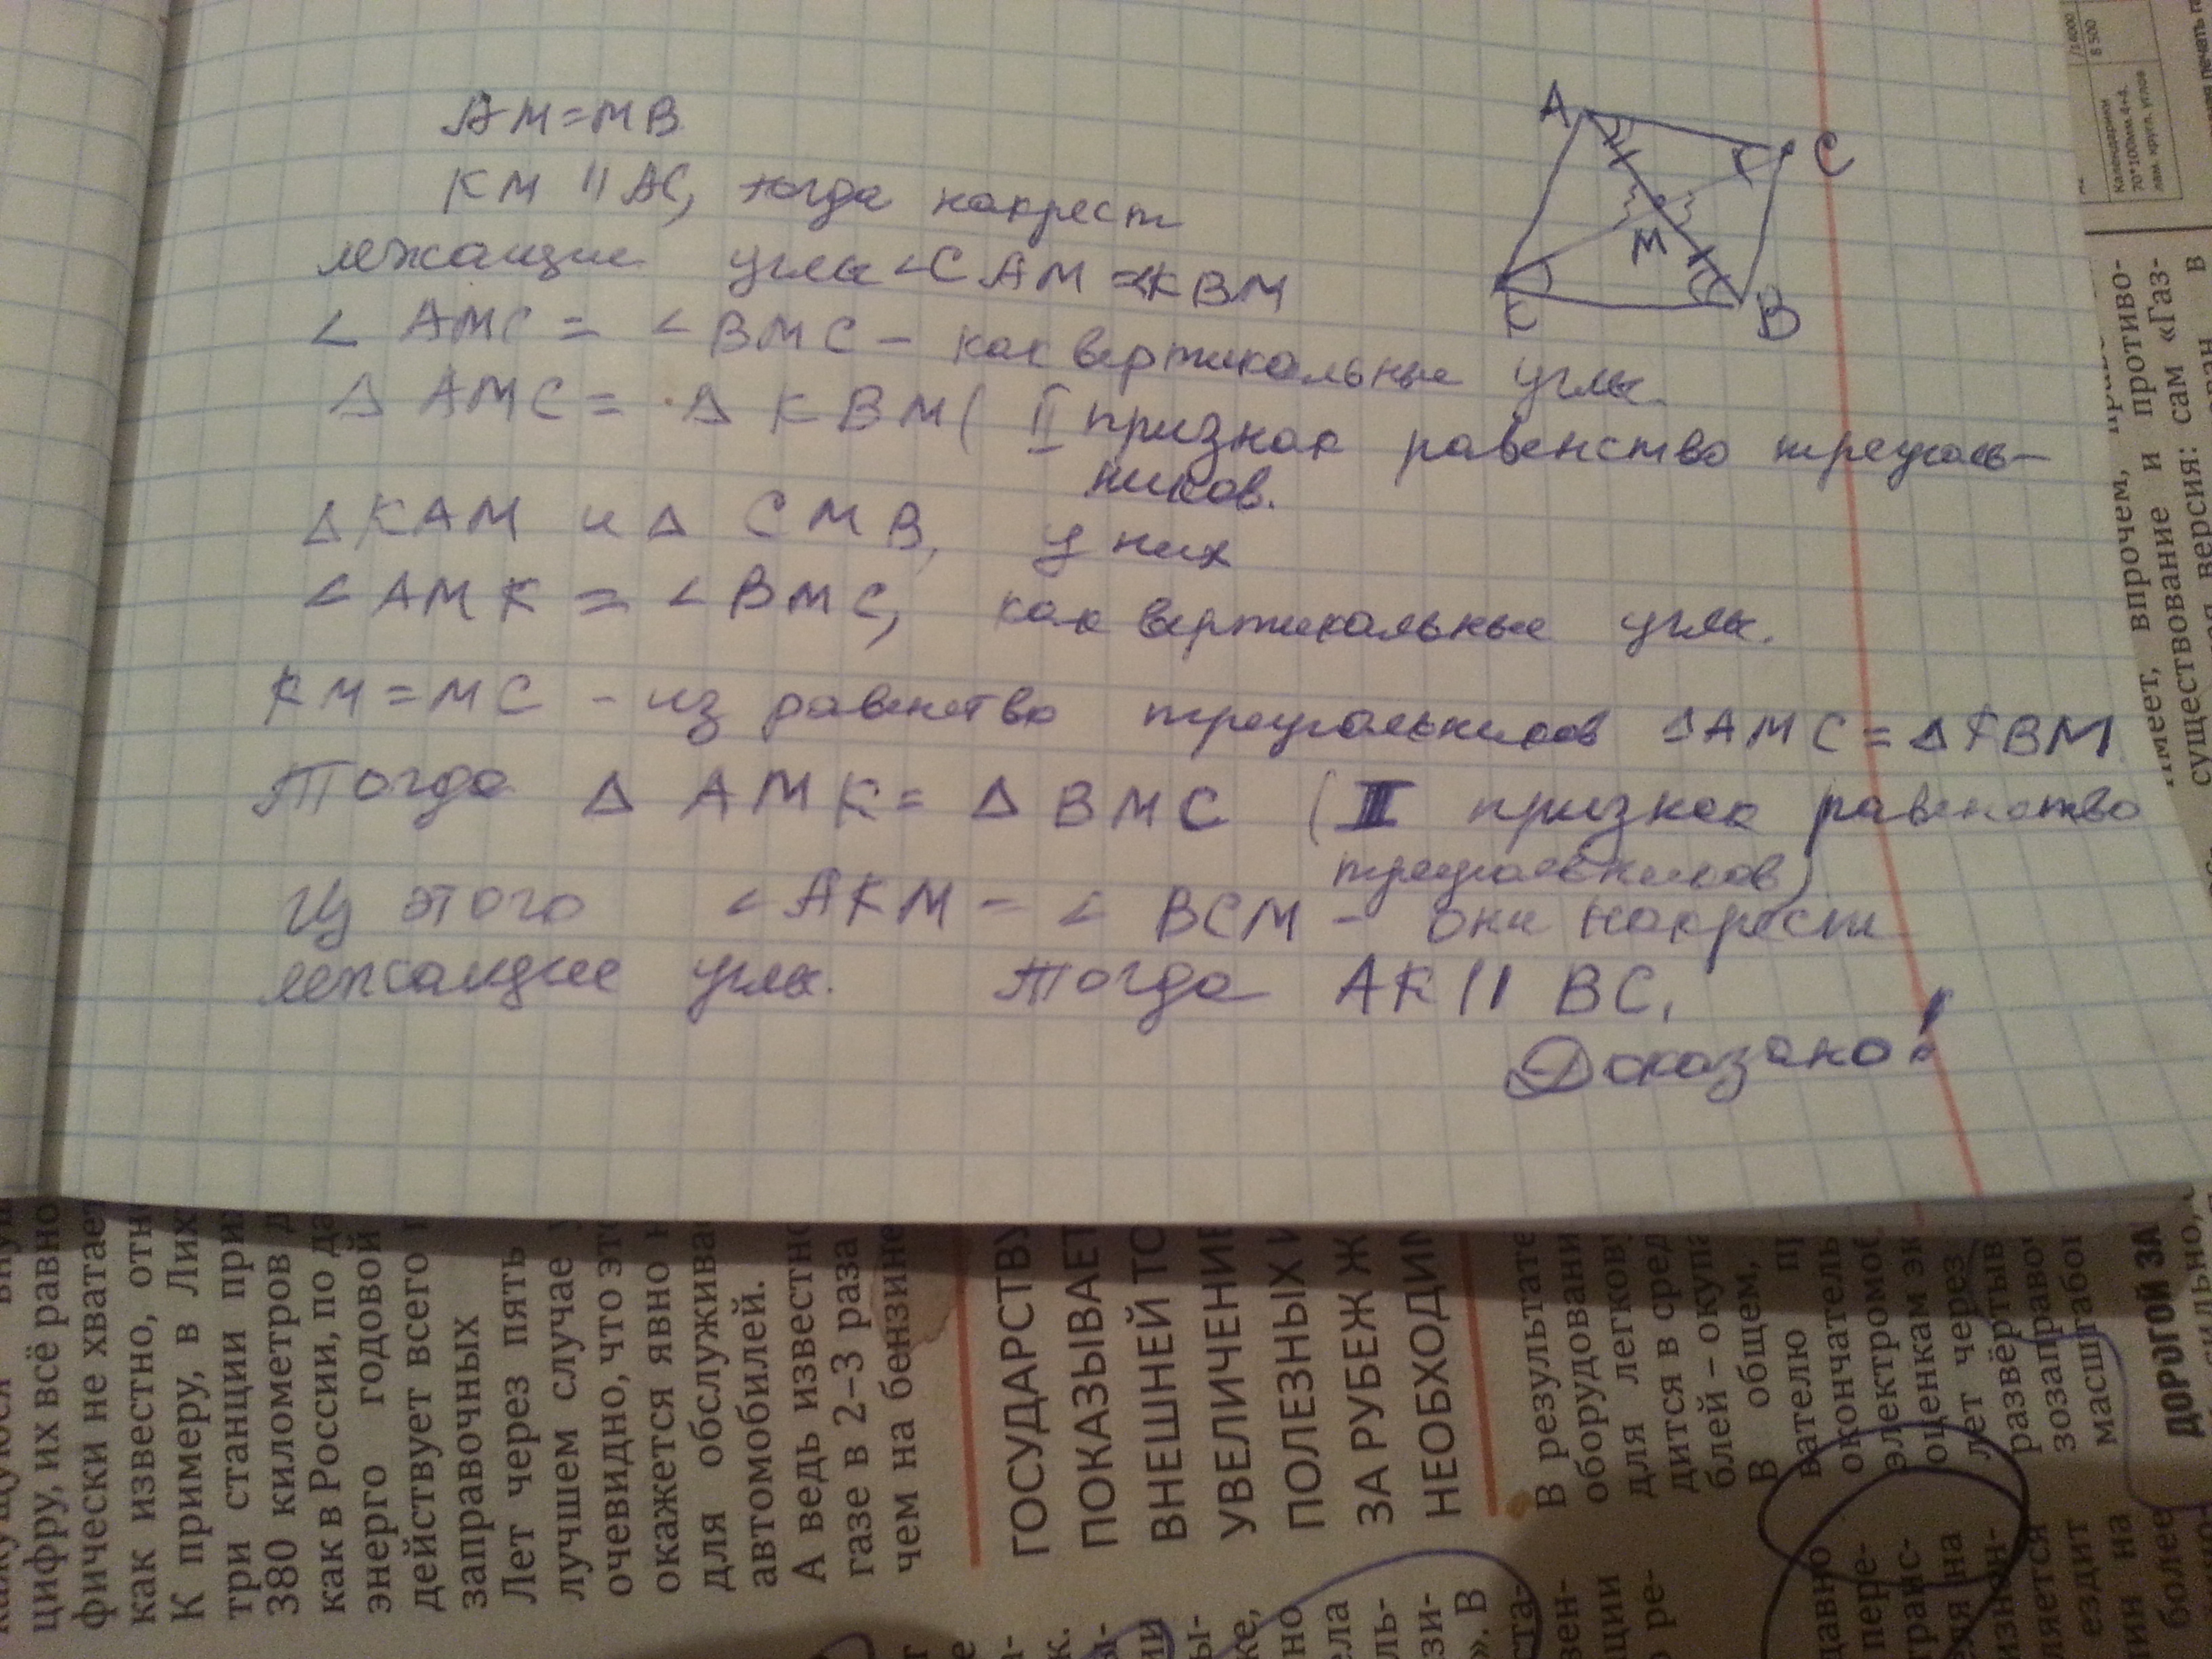 AM=MB
KM || AC, тогда накрест
лежащие углы ∠CAM=∠KBM
∠ AMC = ∠ BMC – как вертикальные углы.
Δ AMC = Δ KBM ( II признак равенства треуголь-
ников.
Δ KAM и Δ CMB, у них
∠ AMK = ∠ BMC, как вертикальные углы.
KM = MC – из равенства треугольников Δ AMC = Δ KBM
Тогда Δ AMK = Δ BMC ( II признак равенства
треугольников)
Из этого ∠ AKM = ∠ BCM – они накрест
лежащие углы. Тогда AK || BC,
Доказано!
A
C
M
B
Календарики
70*100мм.4+4.
лам. хругл. углов
/14000
8 500
имеет, впрочем,
существование и противо-
версия: сам «Газ-
цифру, их всё равно
фически не хватает
как известно, отн
К примеру, в Лих
три станции при
380 километров д
как в России, по да
энерго годовой
действует всего
заправочных
Лет через пять
лучшем случае у
очевидно, что эт
окажется явно н
для обслужива
автомобилей.
А ведь известно
газе в 2–3 раза
чем на бензине
ГОСУДАРСТВУ
ПОКАЗЫВАЕТ
ВНЕШНЕЙ ТО
УВЕЛИЧЕНИЕ
ПОЛЕЗНЫХ И
ЗА РУБЕЖ Ж
НЕОБХОДИМ
В результате
оборудовани
для легкову
дится в сред
блей – окупа
В общем,
вателю пр
окончатель
электромоб
оценкам эк
лет через
развёртыв
зозаправо
масштабо
ДОРОГОЙ ЗА